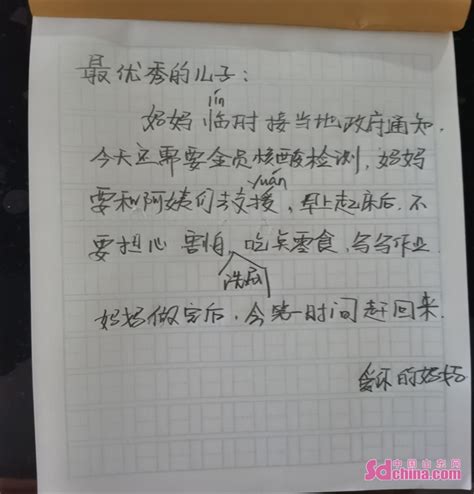 最优秀的儿子：
lín
妈妈临时接当地政府通知，
今天还需要全员核酸检测，妈妈
yuán
要和阿姨们去支援，早上起床后，不
要担心 害怕，吃点零食，写写作业
洗
妈妈做完后，会第一时间赶回来.
爱你的妈妈
中国山东网
Sdchina.com